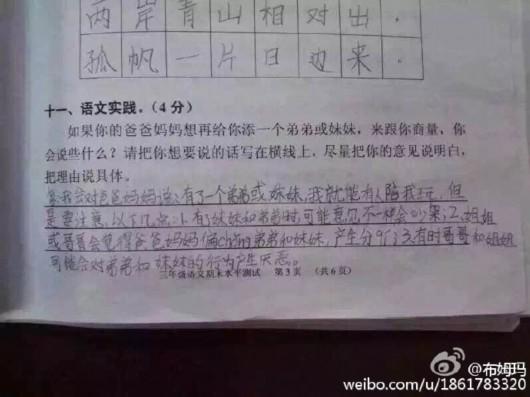 两岸青山相对出.
孤帆一片日边来.
十一、语文实践。（4分）
如果你的爸爸妈妈想再给你添一个弟弟或妹妹，来跟你商量，你
会说些什么？请把你想要说的话写在横线上，尽量把你的意见说明白，
把理由说具体。
我会对爸爸妈妈说：有了一个弟弟或妹妹，我就能有人陪我玩，但
是要注意，以下几点：1.有了妹妹和弟弟时，可能意见不一样会吵架；2.姐姐
或哥哥会觉得爸爸妈妈偏chǒng弟弟和妹妹，产生分歧；3.有时哥哥和姐姐
可能会对弟弟和妹妹的行为产生厌恶。
三年级语文期末水平测试 第3页 （共6页）
@布姆玛
weibo.com/u/1861783320